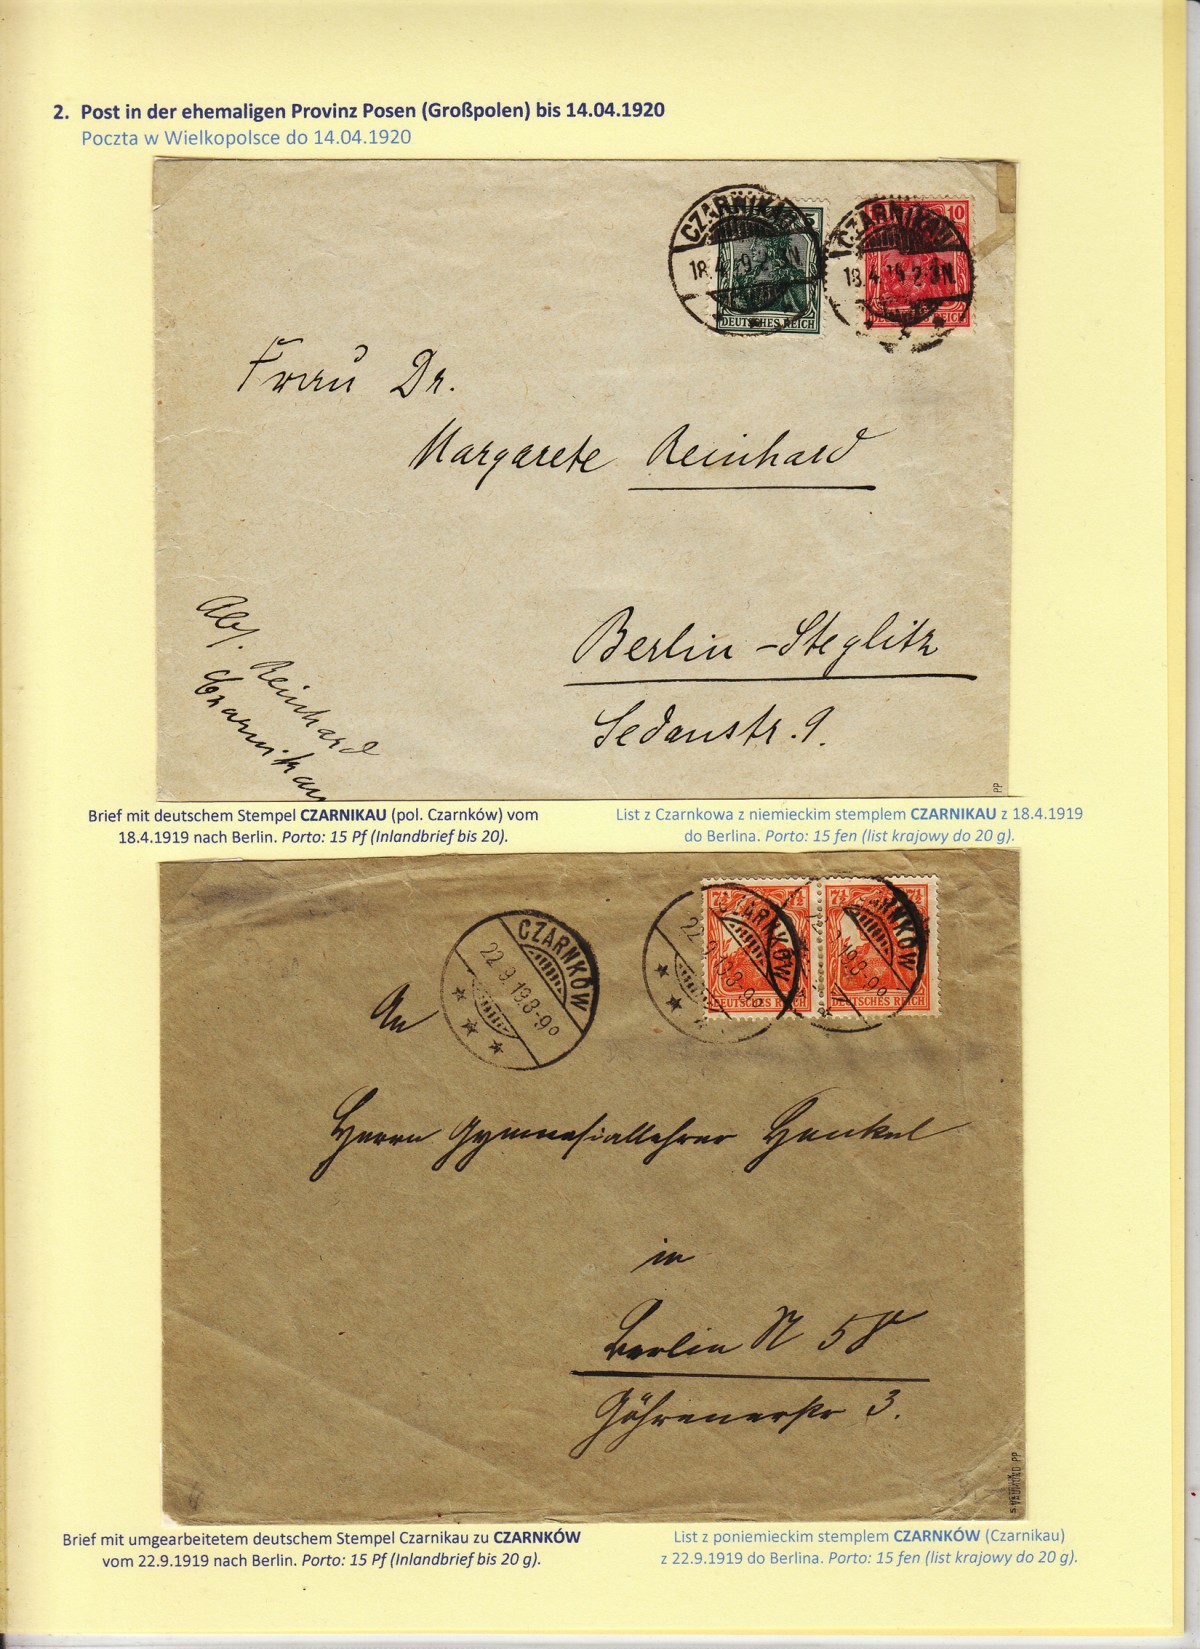 2. Post in der ehemaligen Provinz Posen (Großpolen) bis 14.04.1920
Poczta w Wielkopolsce do 14.04.1920
CZARNIKAU 5
18.4.19.2-3N.
DEUTSCHES REICH
CZARNIKAU 10
18.4.19.2-3N.
DEUTSCHES REICH
Frau Dr.
Margarete Reinhard
Berlin-Steglitz
Sedanstr. 9.
Abs. Reinhard
Czarnikau
PP
Brief mit deutschem Stempel CZARNIKAU (pol. Czarnków) vom
18.4.1919 nach Berlin. Porto: 15 Pf (Inlandbrief bis 20).
List z Czarnkowa z niemieckim stemplem CZARNIKAU z 18.4.1919
do Berlina. Porto: 15 fen (list krajowy do 20 g).
CZARNKÓW
22.9.19.8-9º
CZARNKÓW
22.9.19.8-9º
7½ 7½
DEUTSCHES REICH
CZARNKÓW
7½ 7½
DEUTSCHES REICH
An
Herrn Gymnasiallehrer Henkel
in
Berlin N 58
Göhrenerstr 3.
PP
Brief mit umgearbeitetem deutschem Stempel Czarnikau zu CZARNKÓW
vom 22.9.1919 nach Berlin. Porto: 15 Pf (Inlandbrief bis 20 g).
List z poniemieckim stemplem CZARNKÓW (Czarnikau)
z 22.9.1919 do Berlina. Porto: 15 fen (list krajowy do 20 g).